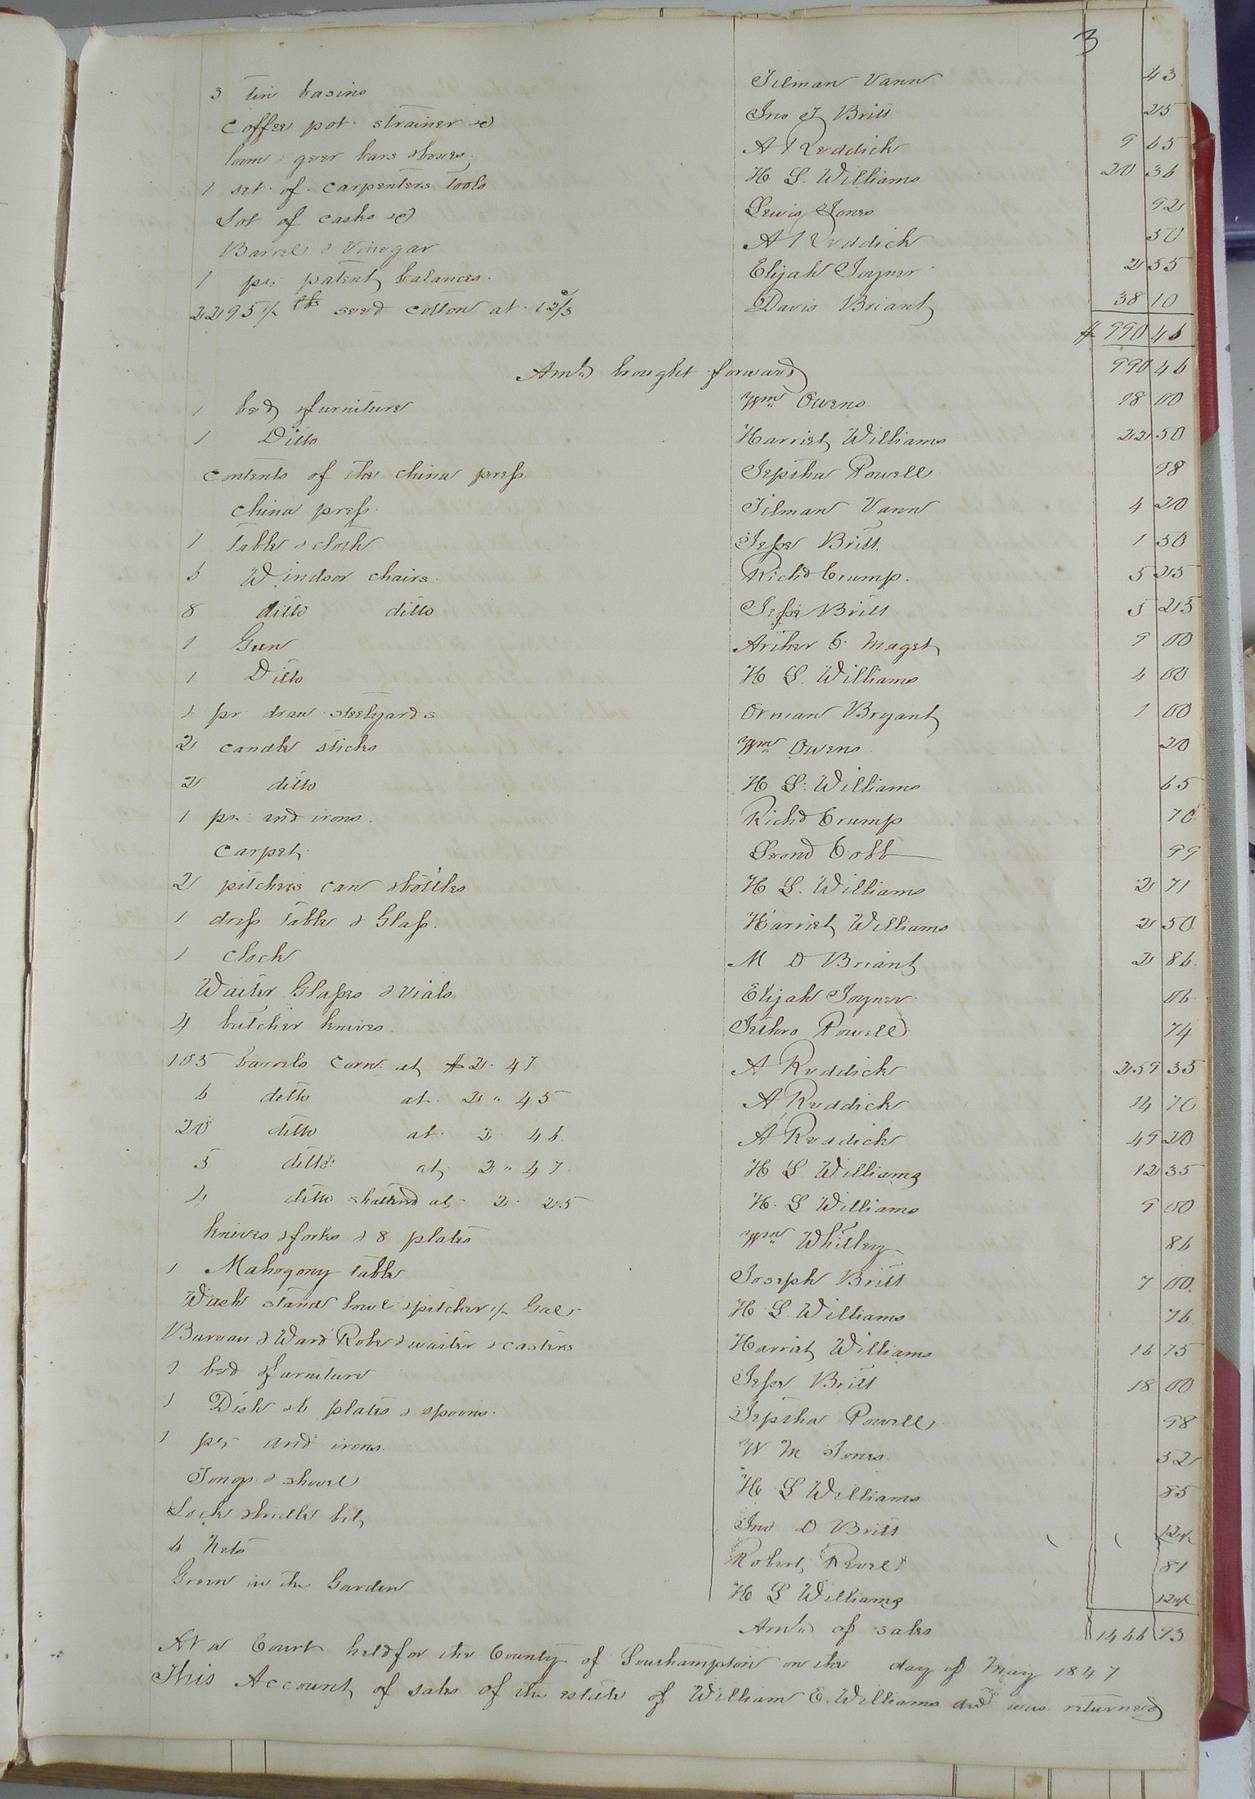 3
3 tin basins Tilman Vann 43
Coffee pot strainer &c Jno J Britt 25
loom geer bars & boxes A Reddick 9 65
1 set of carpenters tools H L Williams 20 36
Lot of casks &c Lewis Jones 92
Barrel & Vinegar A Reddick 50
1 pr patent balances Elijah Joyner 2 55
2295 lbs seed cotton at 1 2/3 Davis Briant 38 10
$ 990 46
Amt brought forward 990 46
1 bed & furniture Wm Owens 18 00
1 Ditto Harriet Williams 22 50
Contents of the china press Jeptha Powell 98
China press Tilman Vann 4 20
1 table & cloth Jesse Britt 1 50
6 Windsor chairs Richd Crump 5 25
8 ditto ditto Jesse Britt 5 25
1 Gun Arther C. Maget 9 00
1 Ditto H L Williams 4 00
1 pr draw steelyards Orman Bryant 1 00
2 candle sticks Wm Owens 20
2 ditto H L. Williams 65
1 pr and irons Richd Crump 70
Carpet Leond Cobb 99
2 pitchers can & bottles H L. Williams 2 71
1 dress table & Glass Harriet Williams 2 50
1 Clock M D Briant 2 86
Waiter Glasses & vials Elijah Joyner 06
4 butcher knives Jethro Powell 74
105 barrels Corn at $2. 47 A. Reddick 259 35
6 ditto at 2 " 45 A Reddick 14 70
20 ditto at 2 46 A Reddick 49 20
5 ditto at 2 " 47 H L Williams 12 35
4 ditto shattered at 2 25 H. L Williams 9 00
knives & forks & 8 plates Wm Whitley 86
1 Mahogony table Joseph Britt 7 00
Wash stand bowl & pitcher H L Williams 76
Bureau & Ward Robe & waiter & casters Harriet Williams 16 75
1 bed & furniture Jesse Britt 18 00
1 Dish & 6 plates & spoons Jeptha Powell 98
1 pr and irons W M Jones 52
Tongs & shovel H L Williams 85
Lock & bridle bit Jno D Britt 12½
6 Nets Robert Revel 81
Green in the Garden H L Williams 12½
Amt of sales 1466 93
At a Court held for the County of Southampton on the day of May 1847
This Account of sales of the estate of William E. Williams decd was returned